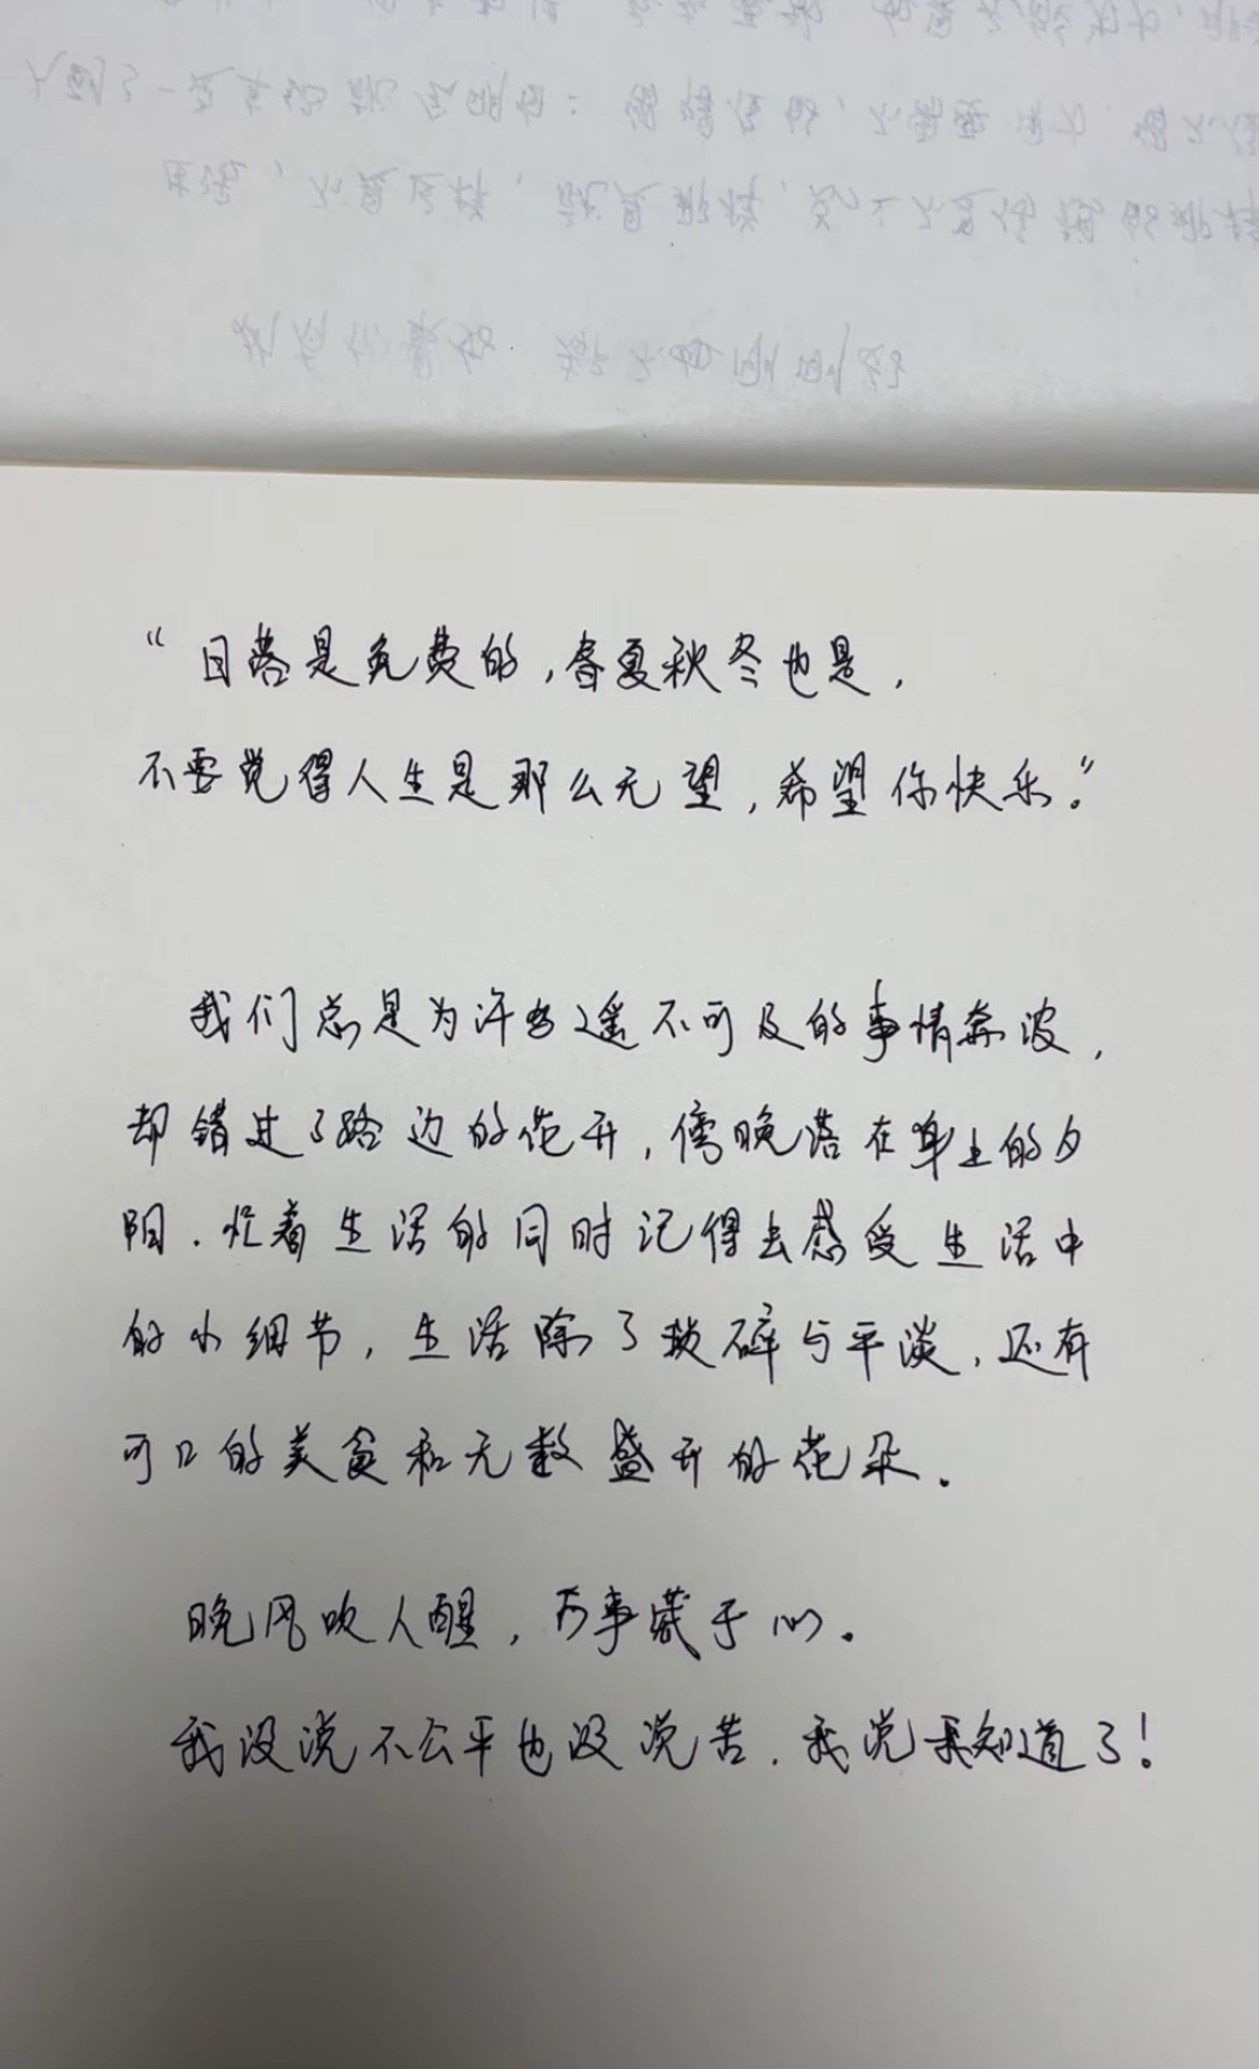 “日落是免费的，春夏秋冬也是，
不要觉得人生是那么无望，希望你快乐。”
我们总是为许多遥不可及的事情奔波，
却错过了路边的花开，傍晚落在身上的夕
阳．忙着生活的同时记得去感受生活中
的小细节，生活除了琐碎与平淡，还有
可口的美食和无数盛开的花朵。
晚风吹人醒，万事藏于心。
我没说不公平也没说苦．我说我知道了！